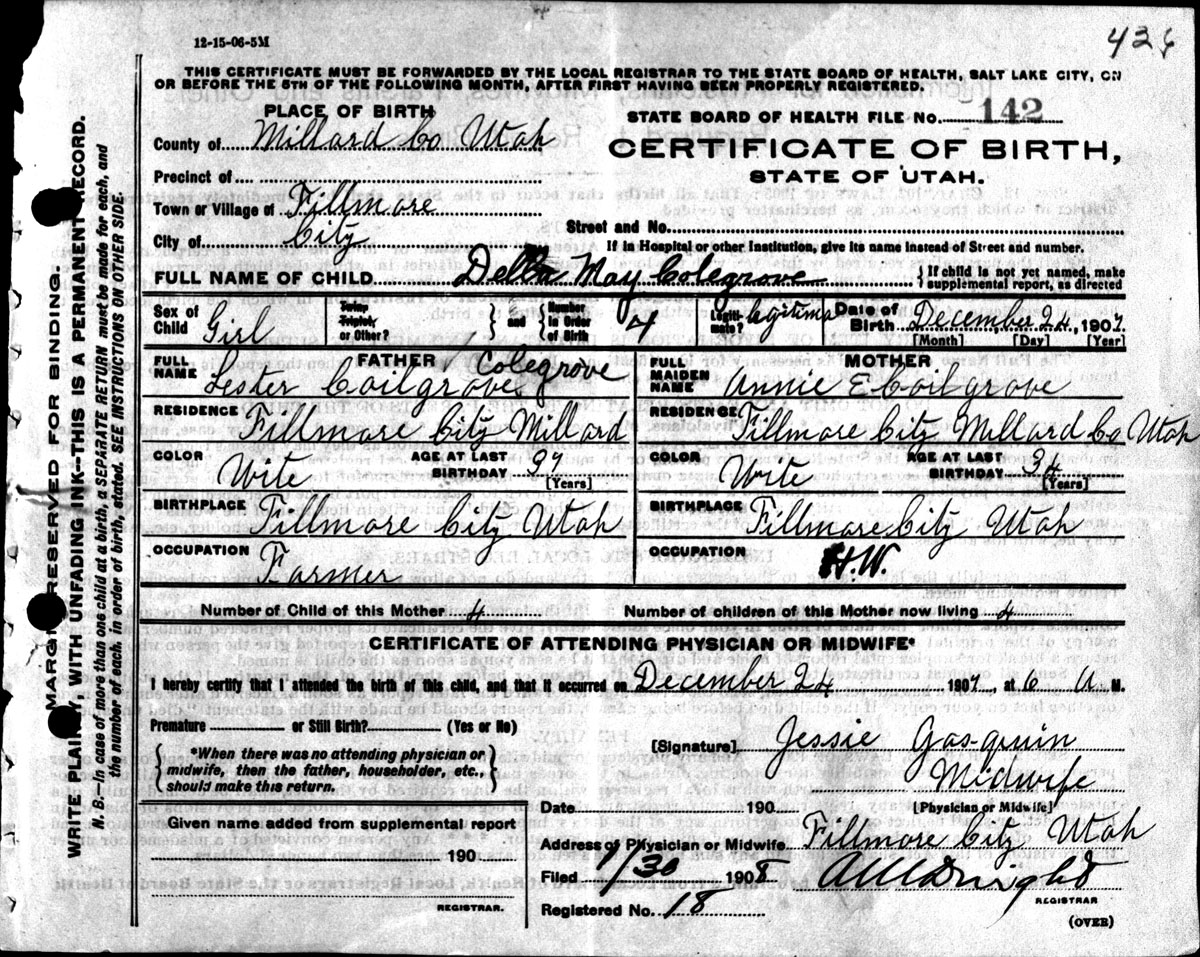 12-15-06-5M
426
THIS CERTIFICATE MUST BE FORWARDED BY THE LOCAL REGISTRAR TO THE STATE BOARD OF HEALTH, SALT LAKE CITY, ON
OR BEFORE THE 5TH OF THE FOLLOWING MONTH, AFTER FIRST HAVING BEEN PROPERLY REGISTERED.
PLACE OF BIRTH
STATE BOARD OF HEALTH FILE NO. 142
County of Millard Co Utah
CERTIFICATE OF BIRTH,
STATE OF UTAH.
Precinct of
Town or Village of Fillmore
Street and No.
City of City
If in Hospital or other Institution, give its name instead of Street and number.
FULL NAME OF CHILD Della May Colegrove { If child is not yet named, make supplemental report, as directed
Sex of Child Girl
Twin, Triplet, or Other? } and { Number in Order of Birth 4
Legitimate? legitima
Date of Birth December 24, 1907
[Month] [Day] [Year]
FATHER
FULL NAME Lester Coilgrove Colegrove
MOTHER
FULL MAIDEN NAME Annie E Coilgrove
RESIDENCE Fillmore City Millard
RESIDENCE Fillmore City Millard Co Utah
COLOR Wite AGE AT LAST BIRTHDAY 37 [Years]
COLOR Wite AGE AT LAST BIRTHDAY 34 [Years]
BIRTHPLACE Fillmore City Utah
BIRTHPLACE Fillmore City Utah
OCCUPATION Farmer
OCCUPATION H.W.
Number of Child of this Mother 4 Number of children of this Mother now living 4
CERTIFICATE OF ATTENDING PHYSICIAN OR MIDWIFE*
I hereby certify that I attended the birth of this child, and that it occurred on December 24 1907, at 6 A M.
Premature or Still Birth? (Yes or No)
{ *When there was no attending physician or midwife, then the father, householder, etc., should make this return. }
[Signature] Jessie Gasquin
Midwife
[Physician or Midwife]
Date 190
Given name added from supplemental report
190
REGISTRAR.
Address of Physician or Midwife Fillmore City Utah
Filed 1/30 1908
REGISTRAR
Registered No. 18
(OVER)
MARGIN RESERVED FOR BINDING.
WRITE PLAINLY, WITH UNFADING INK--THIS IS A PERMANENT RECORD.
N. B.--In case of more than one child at a birth, a SEPARATE RETURN must be made for each, and
the number of each, in order of birth, stated. SEE INSTRUCTIONS ON OTHER SIDE.